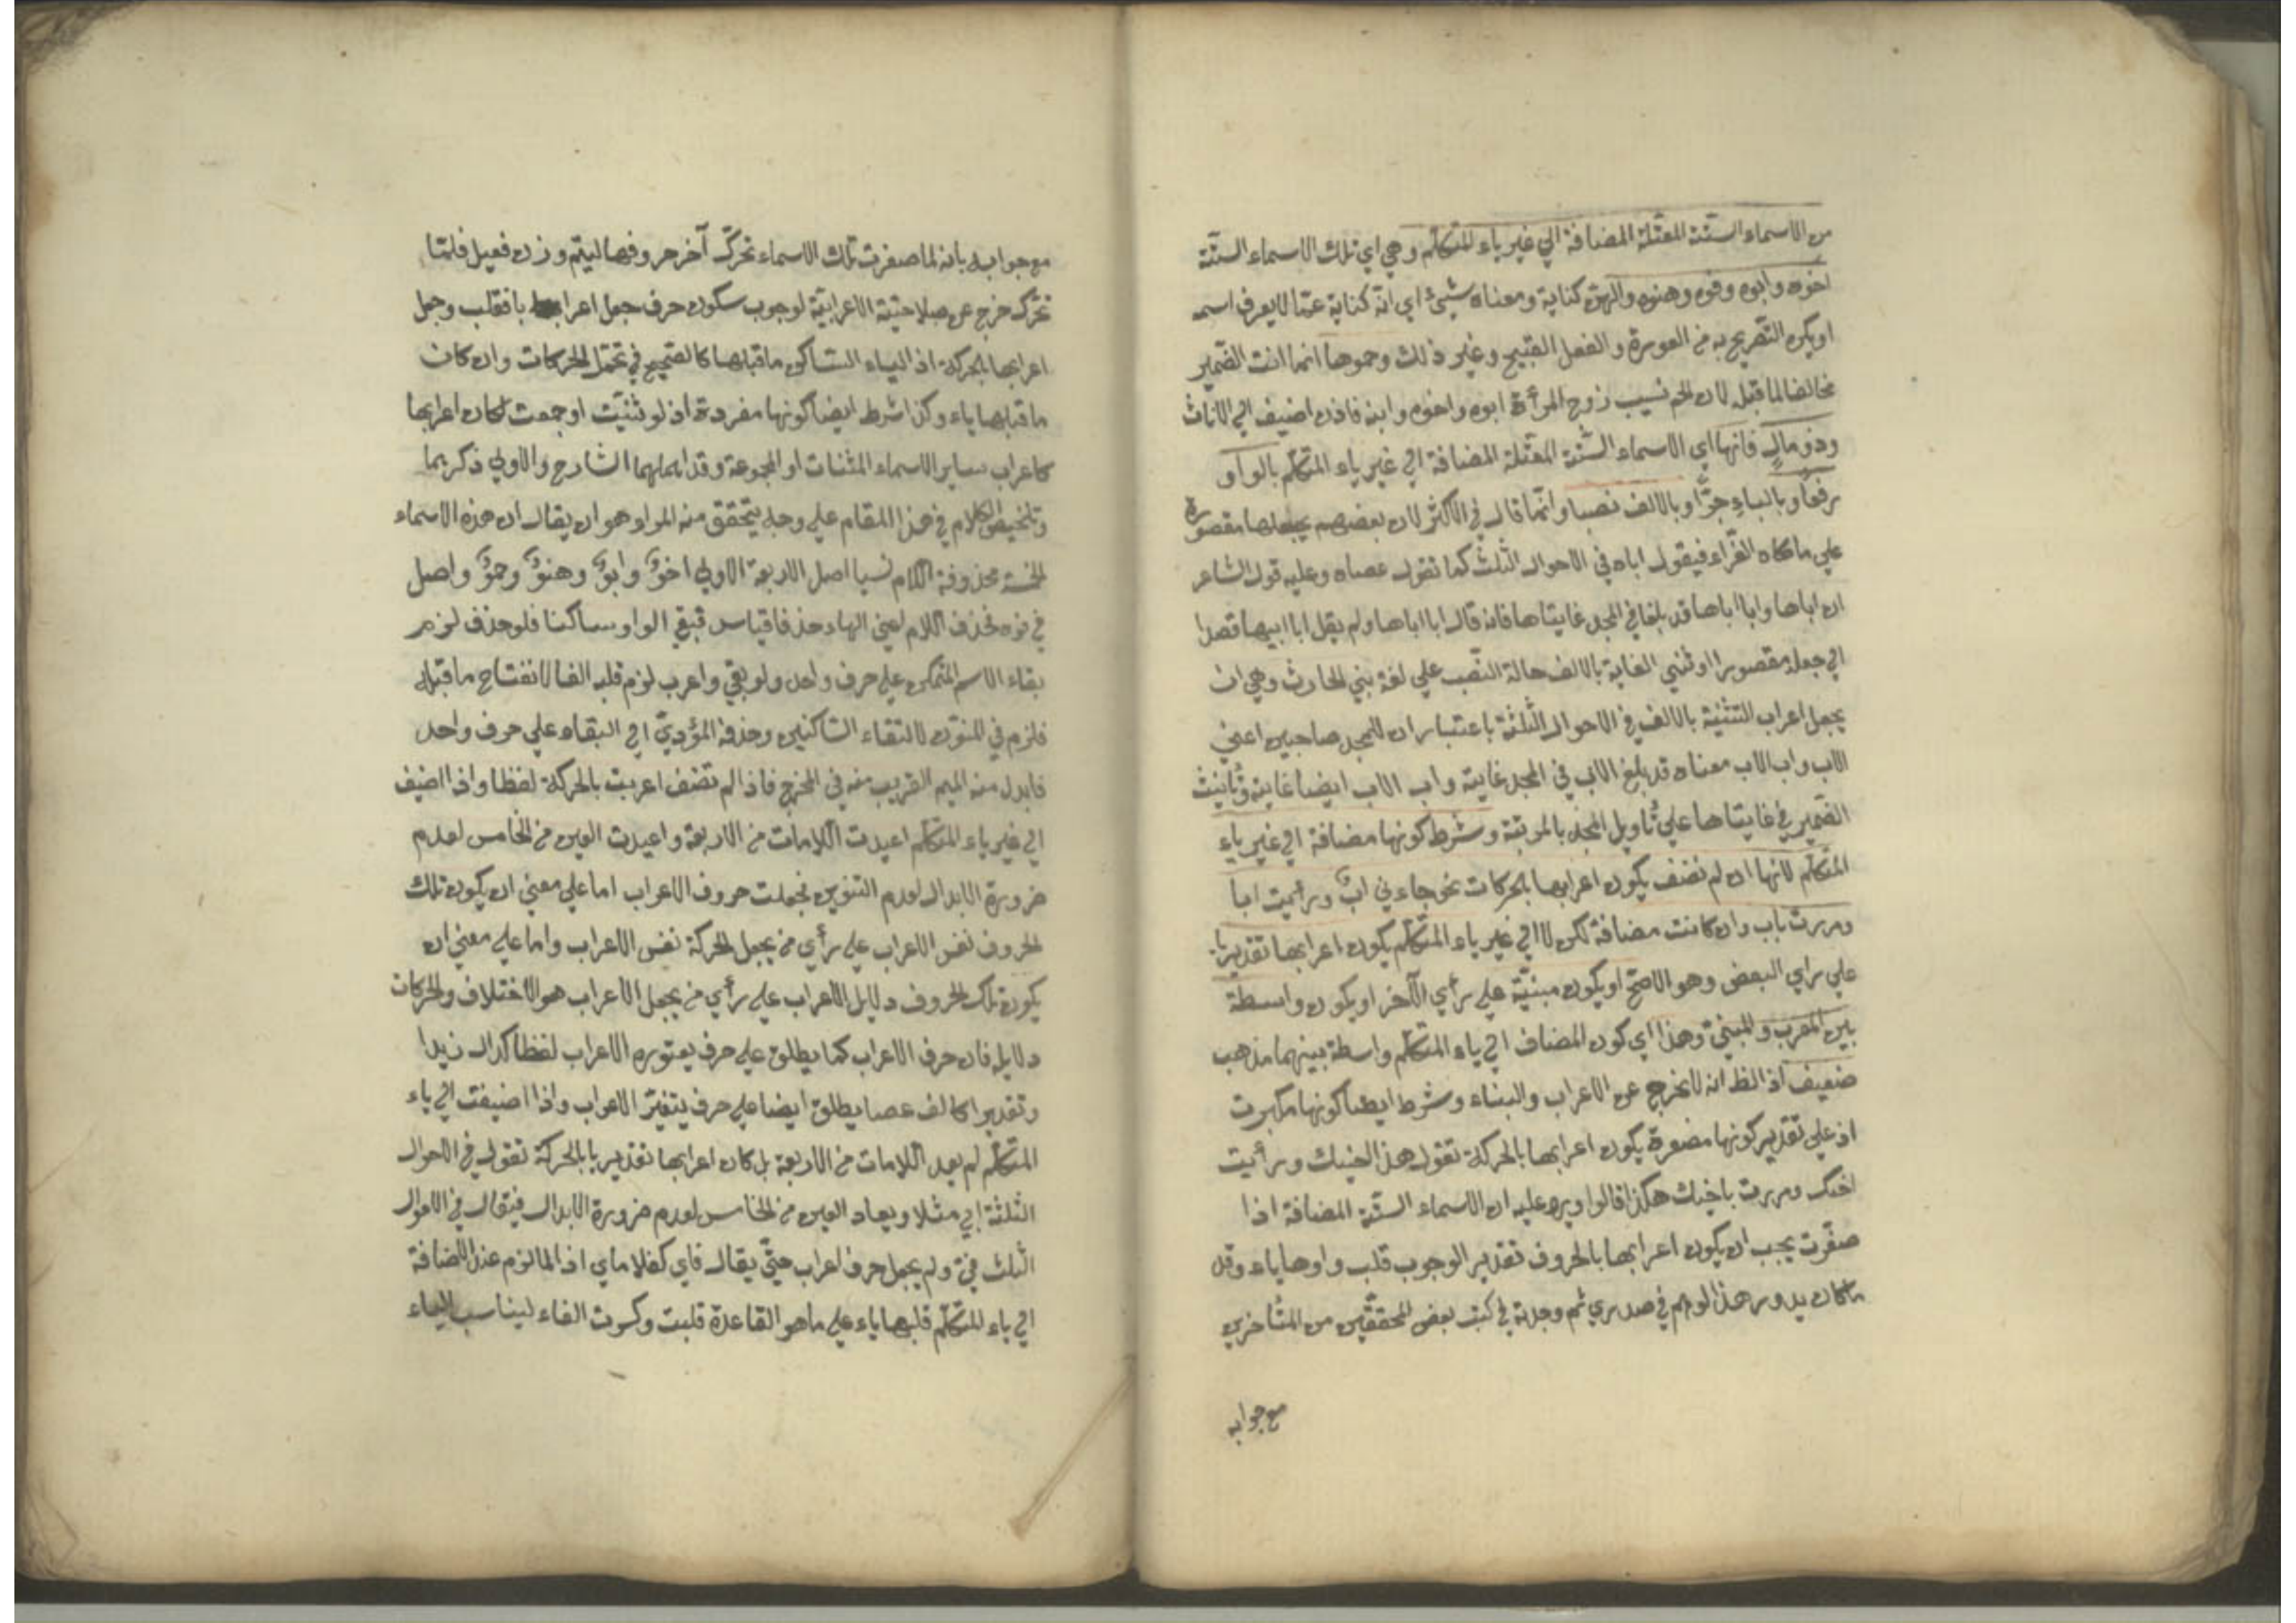 من الاسماء الستّة المعتّلة المضافة الي غير ياء المتكلّم وهي اي تلك الاسماء الستّة
اخوه وابوه وفوه وهنوه والهن كناية ومعناه شيئ اي انّه كناية عمّا لا يعرف اسمه
او يكره التّصريح به من العورة والفعل القبيح وغير ذلك وحموها انما انث الضّمير
مخالفا لما قبله لان الحم نسيب زوج المرأة ابوه واخوه وابنه فاذن اضيف الي الاناث
وذو مالٍ فانها اي الاسماء الستّة المعتّلة المضافة الي غير ياء المتكلّم بالواو
رفعًا وبالياءِ جرًّا وبالالف نصبا وانّما قال في الاكثر لان بعضهم يجعلها مقصورة
علي ما حكاه الفرّاء فيقول اباه في الاحوال الثلث كما تقول عصاه وعليه قول الشاعر
ان اباها وابا اباها قد بلغا في المجد غايتاها فانه قال ابا اباها ولم يقل ابا ابيها قصدا
الي جعله مقصورا او ثنّي الغاية بالالف حالة النّصب علي لغة بني الحارث وهي ان
يجعل اعراب التثنية بالالف في الاحوال الثلثة باعتبار ان للمجد صاحبين اعني
الاب واب الاب معناه قد بلغ الاب في المجد غايته واب الاب ايضا غايته وتأنيث
الضّمير في غايتاها علي تأويل المجد بالمرتبة وشرط كونها مضافة الي غير ياء
المتكلّم لانها ان لم تضف يكون اعرابها بالحركات نحو جاءني ابٌ ورأيت ابا
ومررت باب وان كانت مضافة لكن لا الي غير ياء المتكلّم يكون اعرابها تقديريا
علي راي البعض وهو الاصحّ او يكون مبنيّة علي رأي الآخر او يكون واسطة
بين المعرب والمبنيّ وهذا اي كون المضاف الي ياء المتكلّم واسطة بينهما مذهب
ضعيف اذ الظ انه لا يخرج عن الاعراب والبناء وشرط ايضا كونها مكبرت
اذ علي تقدير كونها مصغرة يكون اعرابها بالحركة تقول هذا اخيك ورأيت
اخيك ومررت باخيك هكذا قالوا ويرد عليه ان الاسماء الستّة المضافة اذا
صغّرت يجب ان يكون اعرابها بالحروف تقديرا لوجوب قلب واوها ياء وقد
ما كان يدور هذا الوهم في صدري ثم وجدته في كتب بعض المحقّقين من المتأخرين
مع جوابه
مع جوابه بانه لما صغرت تلك الاسماء تحرّك آخر حروفها ليتم وزن فعيل فلمّا
تحرّك خرج عن صلاحيّة الاعرابيّة لوجوب سكون حرف جعل اعرابا فقلب وجعل
اعرابها بالحركة اذ الياء السّاكن ما قبلها كالصّحيح في تحمّل الحركات وان كان
ما قبلها ياء وكذا شرط ايضا كونها مفردة اذ لو ثنيّت او جمعت لكان اعرابها
كاعراب ساير الاسماء المثنات او المجموعة وقد اهملهما الشارح والاولي ذكرهما
وتلخيص الكلام في هذا المقام علي وجه يتحقق منه المراد هو ان يقال ان هذه الاسماء
الخمسة محذوفة اللام نسيا اصل الاربعة الاولي اخوٌ وابوٌ وهنوٌ وحموٌ واصل
في فوه فحذف اللام اعني الهاء حذفا قياس فبقي الواو ساكنا فلو حذف لزم
بقاء الاسم المتمكن علي حرف واحد ولو بقي واعرب لزم قلبه الفا لانفتاح ما قبله
فلزم في المنوّن لالتقاء السّاكنين وحذفه المؤديّ الي البقاء علي حرف واحد
فابدل منه الميم القريب منه في المخرج فاذا لم تضف اعربت بالحركة لفظا واذا اضيف
الي غير ياء المتكلّم اعيدت اللامات من الاربعة واعيدت العين من الخامس لعدم
ضرورة الابدال لعدم التنوين فجعلت حروف الاعراب اما علي معني ان يكون تلك
الحروف نفس الاعراب علي رأي من يجعل الحركة نفس الاعراب واما علي معني ان
يكون تلك الحروف دلايل الاعراب علي رأي من يجعل الاعراب هو الاختلاف والحركات
دلايله فان حرف الاعراب كما يطلق علي حرف يعتوره الاعراب لفظا كدال زيدا
وتقديرا كالف عصا يطلق ايضا علي حرف يتغيّر الاعراب واذا اضيفت الي ياء
المتكلّم لم يعد اللامات من الاربعة بل كان اعرابها تقديريا بالحركة تقول في الاحوال
الثلثة ابي مثلا ويعاد العين من الخامس لعدم ضرورة الابدال فيقال في الاحوال
الثلث فيّ ولم يجعل حرف اعراب حتّي يقال فاي كغلاماي اذ لما لزم عند الاضافة
الي ياء المتكلّم قلبها ياء علي ما هو القاعدة قلبت وكسرت الفاء ليناسب الياء